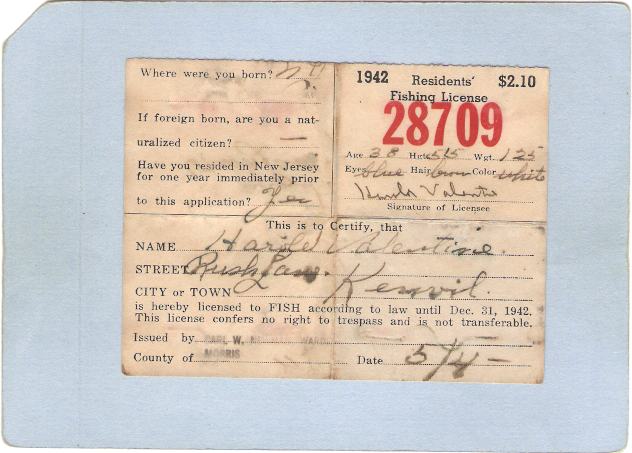 Where were you born? N.J.
If foreign born, are you a nat-
uralized citizen? —
Have you resided in New Jersey
for one year immediately prior
to this application? Yes
1942 Residents' $2.10
Fishing License
28709
Age 38 Hgt. 5'5 Wgt. 125
Eyes blue Hair brown Color white
Harold Valentine
Signature of Licensee
This is to Certify, that
NAME Harold Valentine.
STREET Rush Lane.
CITY or TOWN Kenvil.
is hereby licensed to FISH according to law until Dec. 31, 1942.
This license confers no right to trespass and is not transferable.
Issued by W.
County of MORRIS Date 5/4 —